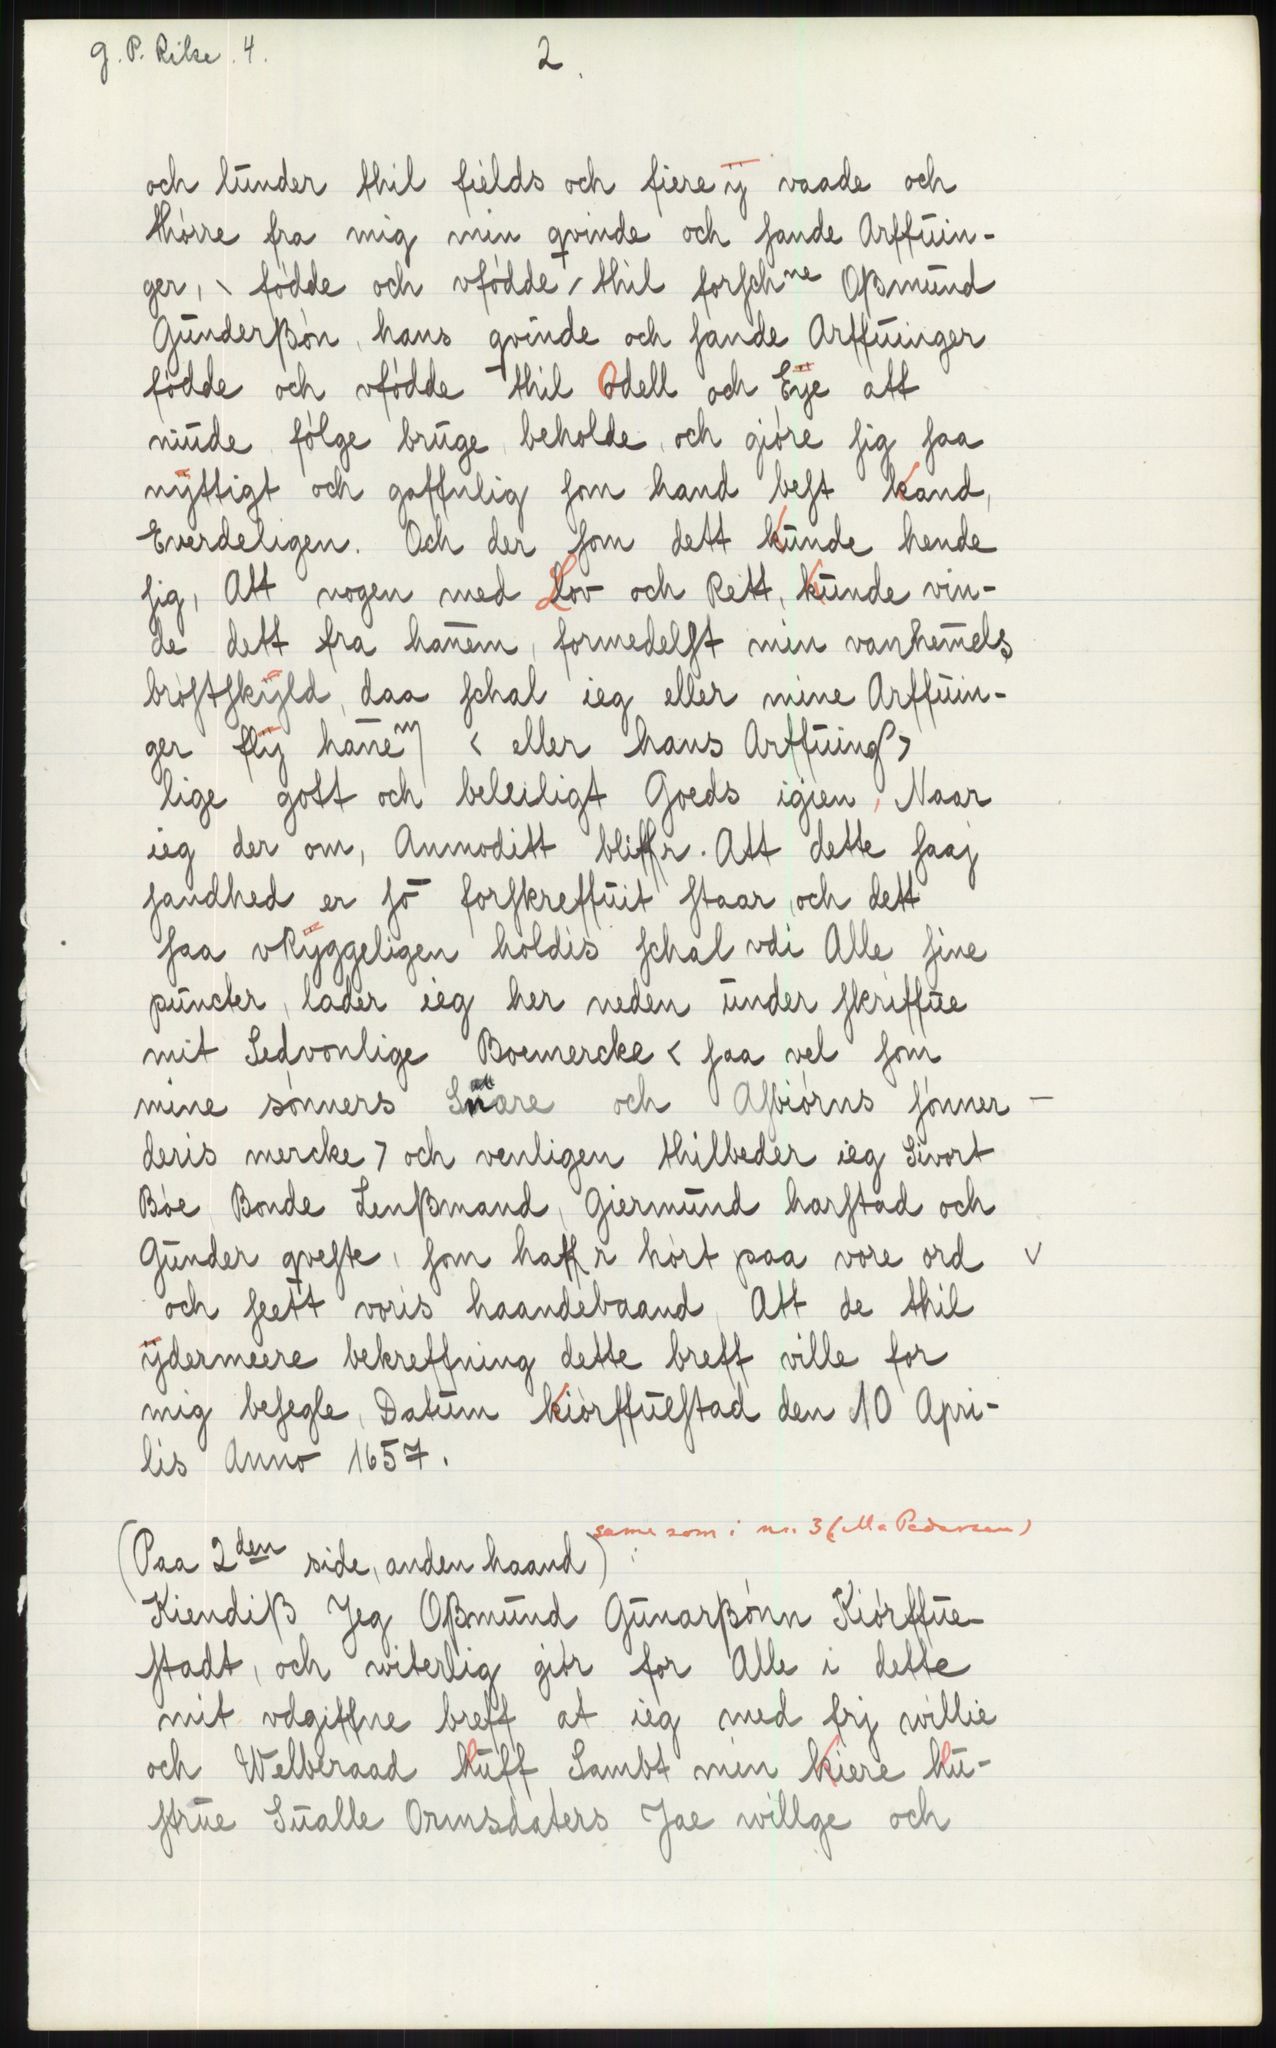 g. P. Rike. 4.
2.
och lunder thil fields och fiere ÿ vaade och
thörre fra mig min qvinde och sande Arffuin-
ger, \ födde och vfödde / thil forschne Oßmund
Gunderßön, hans qvinde och sande Arffuinger
födde och vfödde thil Odell och Eÿe att
niude fölge bruge, beholde, och giöre sig saa
nÿttigt och gaffnlig som hand best kand,
Everdeligen. Och der som dett kunde hende
sig, Att nogen med Lov och Rett, kunde vin-
de dett fra hanem, formedelst min vanhemels
bröstskÿld, daa schal ieg eller mine Arffuin-
ger flÿ hanem < eller hans Arffuing >
lige gott och beleiligt Goeds igien, Naar
ieg der om, Anmoditt bliffr. Att dette saaj
sandhed er sō forskreffuit staar, och dett
saa vRÿggeligen holdis schal vdi Alle sine
puncter, lader ieg her neden under skriffue
mit Sedvonlige Boemercke < saa vel som
mine sönners Snare och Asbiörns sönner –
deris mercke > och venligen thilbeder ieg Sivort
Böe Bonde Lenßmand, Giermund harstad och
Gunder qveste, som haffr hört paa vore ord ✓
och seett voris haandebaand, Att de thil
ÿdermeere bekreffning dette breff ville for
mig besegle, Datum kiörffuestad den 10 Apri-
lis Anno 1657.
same som i nr. 3 (Ma Pedersen)
(Paa 2den side, anden haand) :
Kiendiß Jeg Oßmund Gunarßönn Kiörffue-
stadt, och witerlig giör for Alle i dette
mit vdgiffne breff at ieg med frj willie
och Welberaad huff Sambt min kiere hu-
strue Sualle Ormsdaters Jae willge och